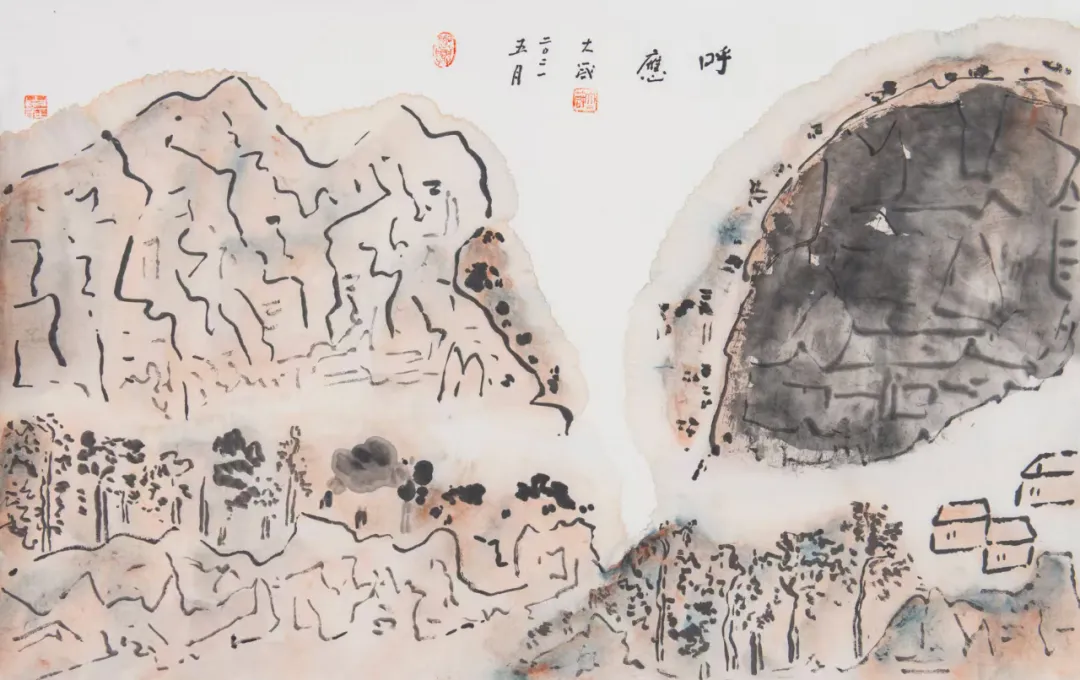 呼應
大箴
二〇二一
五月